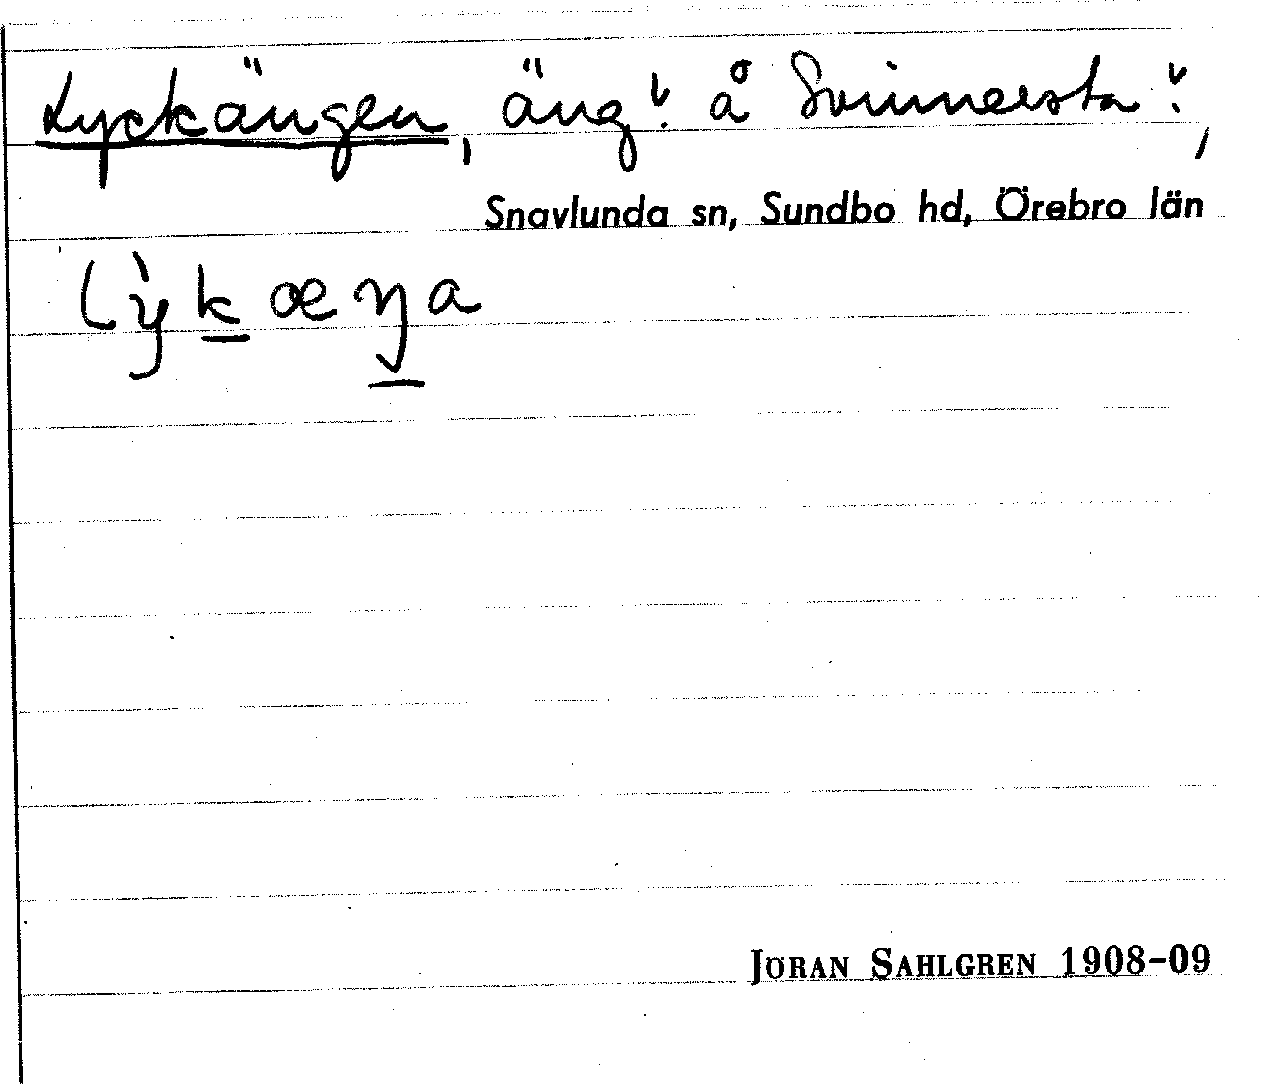 Lyckängen, äng å Svinnersta,
Snavlunda sn, Sundbo hd, Örebro län
lỳkæŋa
JÖRAN SAHLGREN 1908-09